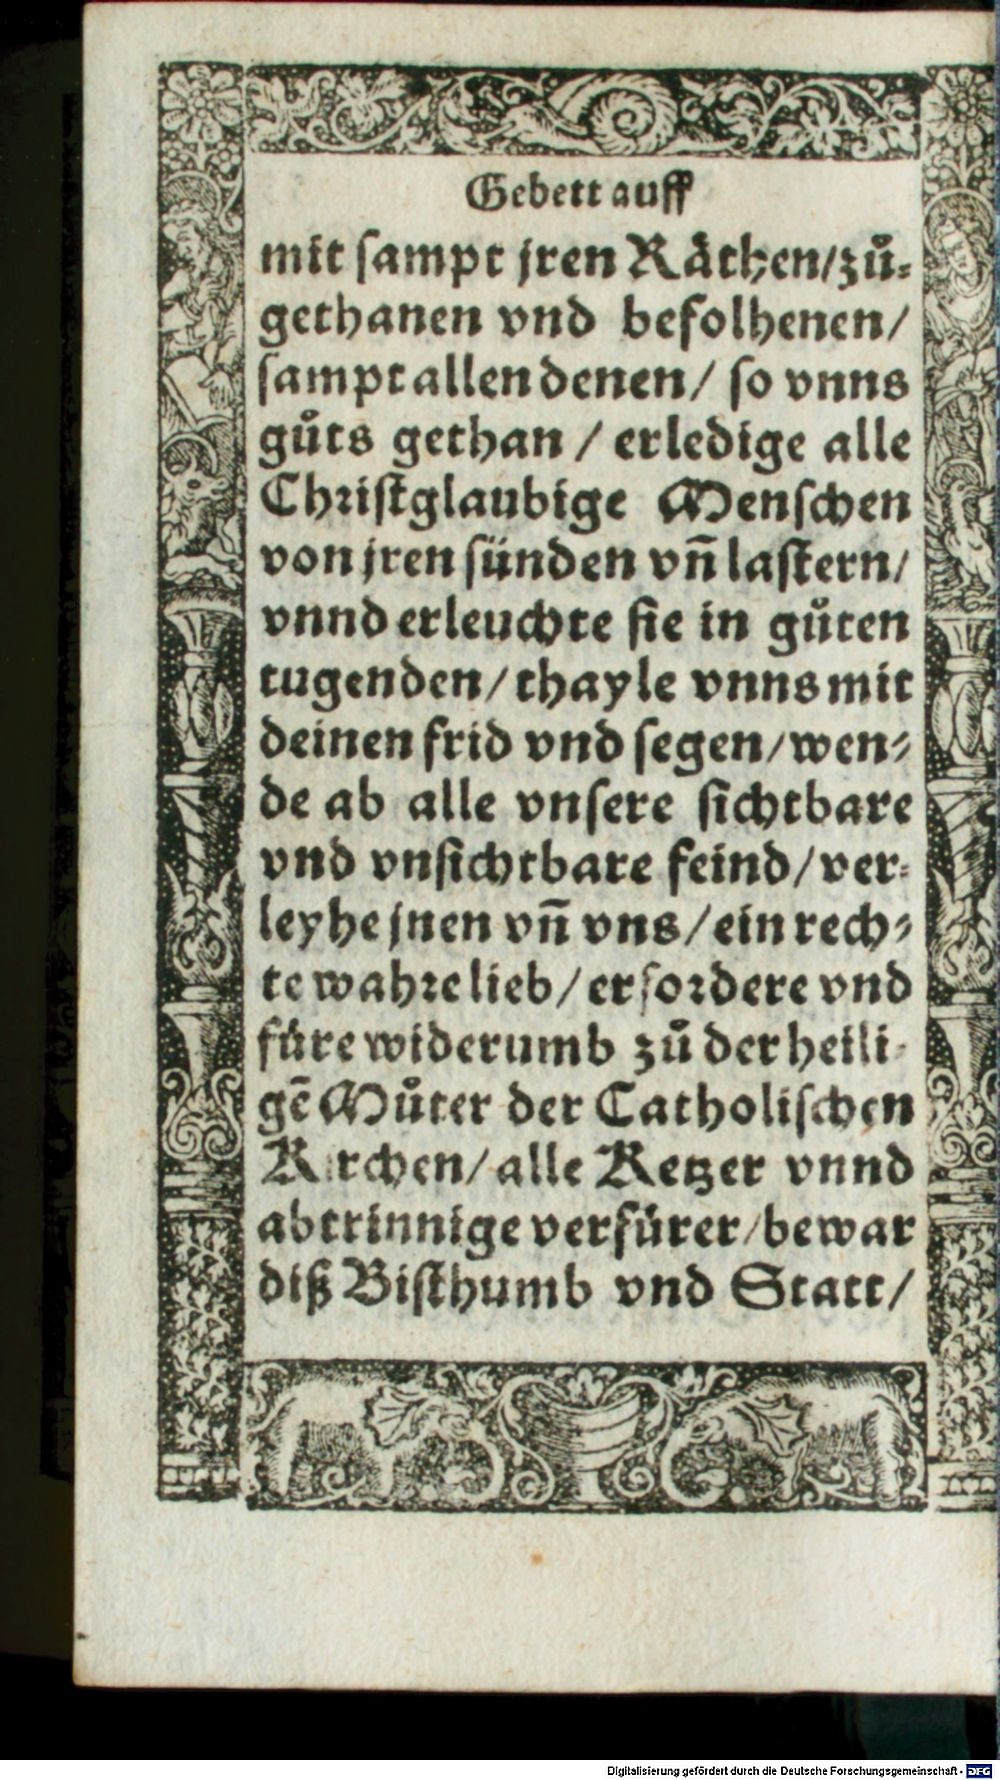 Gebett auff
mit sampt jren Räthen/zuͦ-
gethanen vnd befolhenen/
sampt allen denen/ so vnns
guͦts gethan / erledige alle
Christglaubige Menschen
von jren sünden vn̄ lastern/
vnnd erleuchte sie in guͦten
tugenden/ thayle vnns mit
deinen frid vnd segen/wen-
de ab alle vnsere sichtbare
vnd vnsichtbare feind/ver-
leyhe jnen vn̄ vns/ein rech-
te wahre lieb/erfordere vnd
füre widerumb zuͦ der heili-
gē Muͦter der Catholischen
Kirchen/ alle Ketzer vnnd
abtrinnige verfürer/bewar
diß Bisthumb vnd Statt/
Digitalisierung gefördert durch die Deutsche Forschungsgemeinschaft - DFG